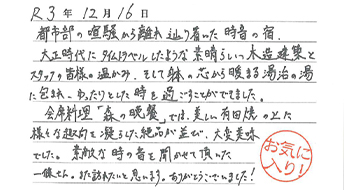 R3年12月16日
都市部の喧騒から離れ辿り着いた時音の宿。
大正時代にタイムトラベルしたような素晴らしい木造建築と
スタッフの皆様の温かみ、そして体の芯から暖まる湯治の湯
に包まれ、ゆったりとした時を過ごすことができました。
会席料理「森の晩餐」では、美しい有田焼の上に
様々な趣向を凝らした絶品が並び、大変美味
でした。素敵な時の音を聞かせて頂いた
一休さん。また訪れたいと思います。ありがとうございました!
お気に
入り!